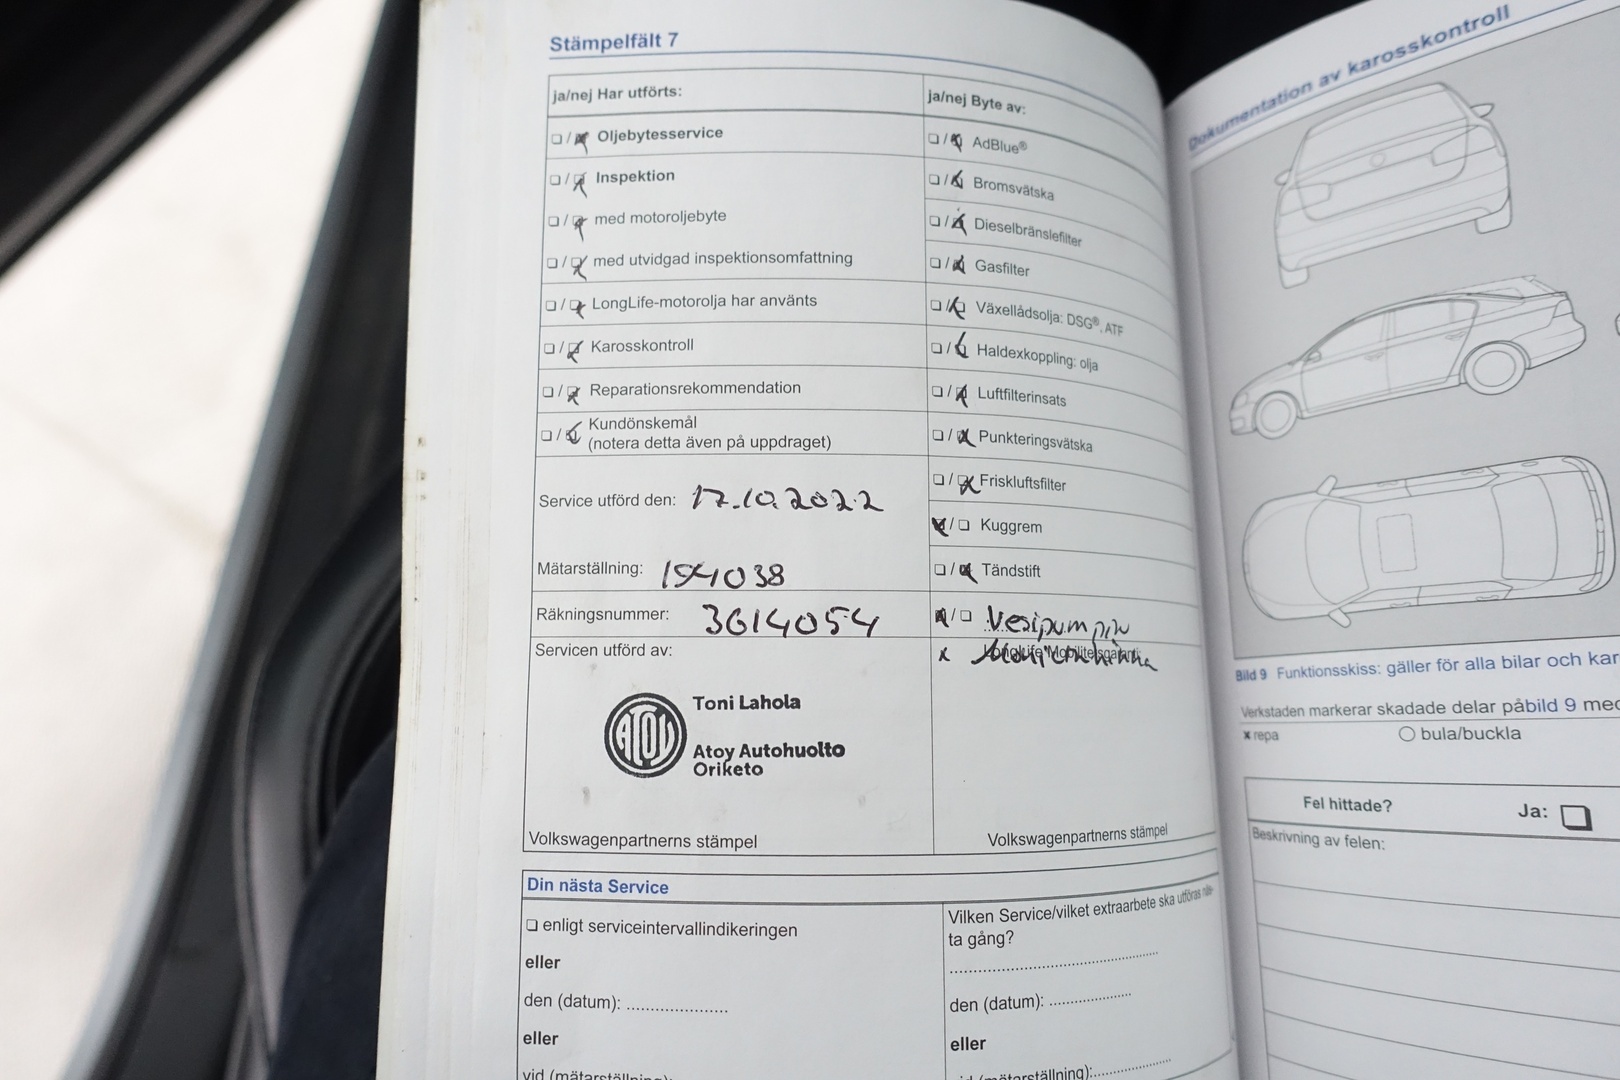 Stämpelfält 7
ja/nej Har utförts:
☐ / ☒ Oljebytesservice
☐ / ☒ Inspektion
☐ / ☒ med motoroljebyte
☐ / ☒ med utvidgad inspektionsomfattning
☐ / ☒ LongLife-motorolja har använts
☐ / ☒ Karosskontroll
☐ / ☒ Reparationsrekommendation
☐ / ☒ Kundönskemål
(notera detta även på uppdraget)
Service utförd den: 17.10.2022
Mätarställning: 154038
Räkningsnummer: 3614054
Servicen utförd av:
ATOY
Toni Lahola
Atoy Autohuolto
Oriketo
Volkswagenpartnerns stämpel
ja/nej Byte av:
☐ / ☒ AdBlue®
☐ / ☒ Bromsvätska
☐ / ☒ Dieselbränslefilter
☐ / ☒ Gasfilter
☐ / ☒ Växellådsolja: DSG®, ATF
☐ / ☒ Haldexkoppling: olja
☐ / ☒ Luftfilterinsats
☐ / ☒ Punkteringsvätska
☐ / ☒ Friskluftsfilter
☒ / ☐ Kuggrem
☐ / ☒ Tändstift
☒ / ☐ Vesipumppu
x Moniurahihna
Volkswagenpartnerns stämpel
Din nästa Service
☐ enligt serviceintervallindikeringen
eller
den (datum): ......................
eller
vid (mätarställning):
Vilken Service/vilket extraarbete ska utföras näs-
ta gång?
den (datum): ..................
eller
vid (mätarställning):
Dokumentation av karosskontroll
Bild 9 Funktionsskiss: gäller för alla bilar och kar
Verkstaden markerar skadade delar på bild 9 med
x repa
○ bula/buckla
Fel hittade? Ja: ☐
Beskrivning av felen: